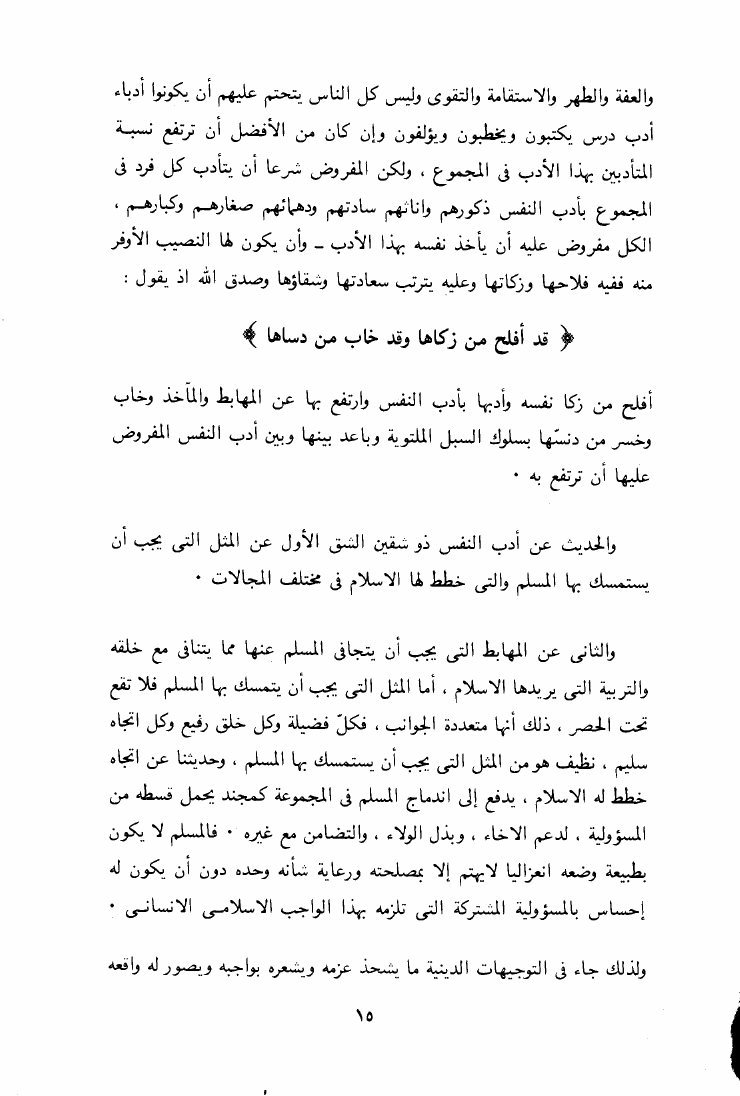 والعفة والطهر والاستقامة والتقوى وليس كل الناس يتحتم عليهم أن يكونوا أدباء
أدب درس يكتبون ويخطبون ويؤلفون وإن كان من الأفضل أن ترتفع نسبة
المتأدبين بهذا الأدب فى المجموع ، ولكن المفروض شرعا أن يتأدب كل فرد فى
المجموع بأدب النفس ذكورهم واناثهم سادتهم ودهمائهم صغارهم وكبارهم ،
الكل مفروض عليه أن يأخذ نفسه بهذا الأدب ـ وأن يكون لها النصيب الأوفر
منه ففيه فلاحها وزكاتها وعليه يترتب سعادتها وشقاؤها وصدق الله اذ يقول :
﴿ قد أفلح من زكاها وقد خاب من دساها ﴾
أفلح من زكا نفسه وأدبها بأدب النفس وارتفع بها عن المهابط والمآخذ وخاب
وخسر من دنسّها بسلوك السبل الملتوية وباعد بينها وبين أدب النفس المفروض
عليها أن ترتفع به ٠
والحديث عن أدب النفس ذو شقين الشق الأول عن المثل التى يجب أن
يستمسك بها المسلم والتى خطط لها الاسلام فى مختلف المجالات ٠
والثانى عن المهابط التى يجب أن يتجافى المسلم عنها مما يتنافى مع خلقه
والتربية التى يريدها الاسلام ، أما المثل التى يجب أن يتمسك بها المسلم فلا تقع
تحت الحصر ، ذلك أنها متعددة الجوانب ، فكلّ فضيلة وكل خلق رفيع وكل اتجاه
سليم ، نظيف هو من المثل التى يجب أن يستمسك بها المسلم ، وحديثنا عن اتجاه
خطط له الاسلام ، يدفع إلى اندماج المسلم فى المجموعة كمجند يحمل قسطه من
المسؤولية ، لدعم الاخاء ، وبذل الولاء ، والتضامن مع غيره ٠ فالمسلم لا يكون
بطبيعة وضعه انعزاليا لايهتم إلا بمصلحته ورعاية شأنه وحده دون أن يكون له
إحساس بالمسؤولية المشتركة التى تلزمه بهذا الواجب الاسلامى الانسانى ٠
ولذلك جاء فى التوجيهات الدينية ما يشحذ عزمه ويشعره بواجبه ويصور له واقعه
١٥